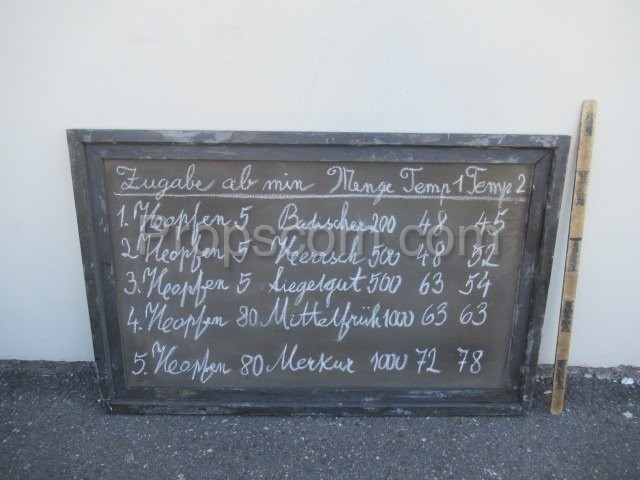 Zugabe ab min Menge Temp 1 Temp 2
1. Hopfen 5 Badischer 200 48 45
Propscom.com
2. Hopfen 5 Herrsch 500 48 52
3. Hopfen 5 Siegelgut 500 63 54
4. Hopfen 80 Mittelfrüh 1000 63 63
5. Hopfen 80 Merkur 1000 72 78